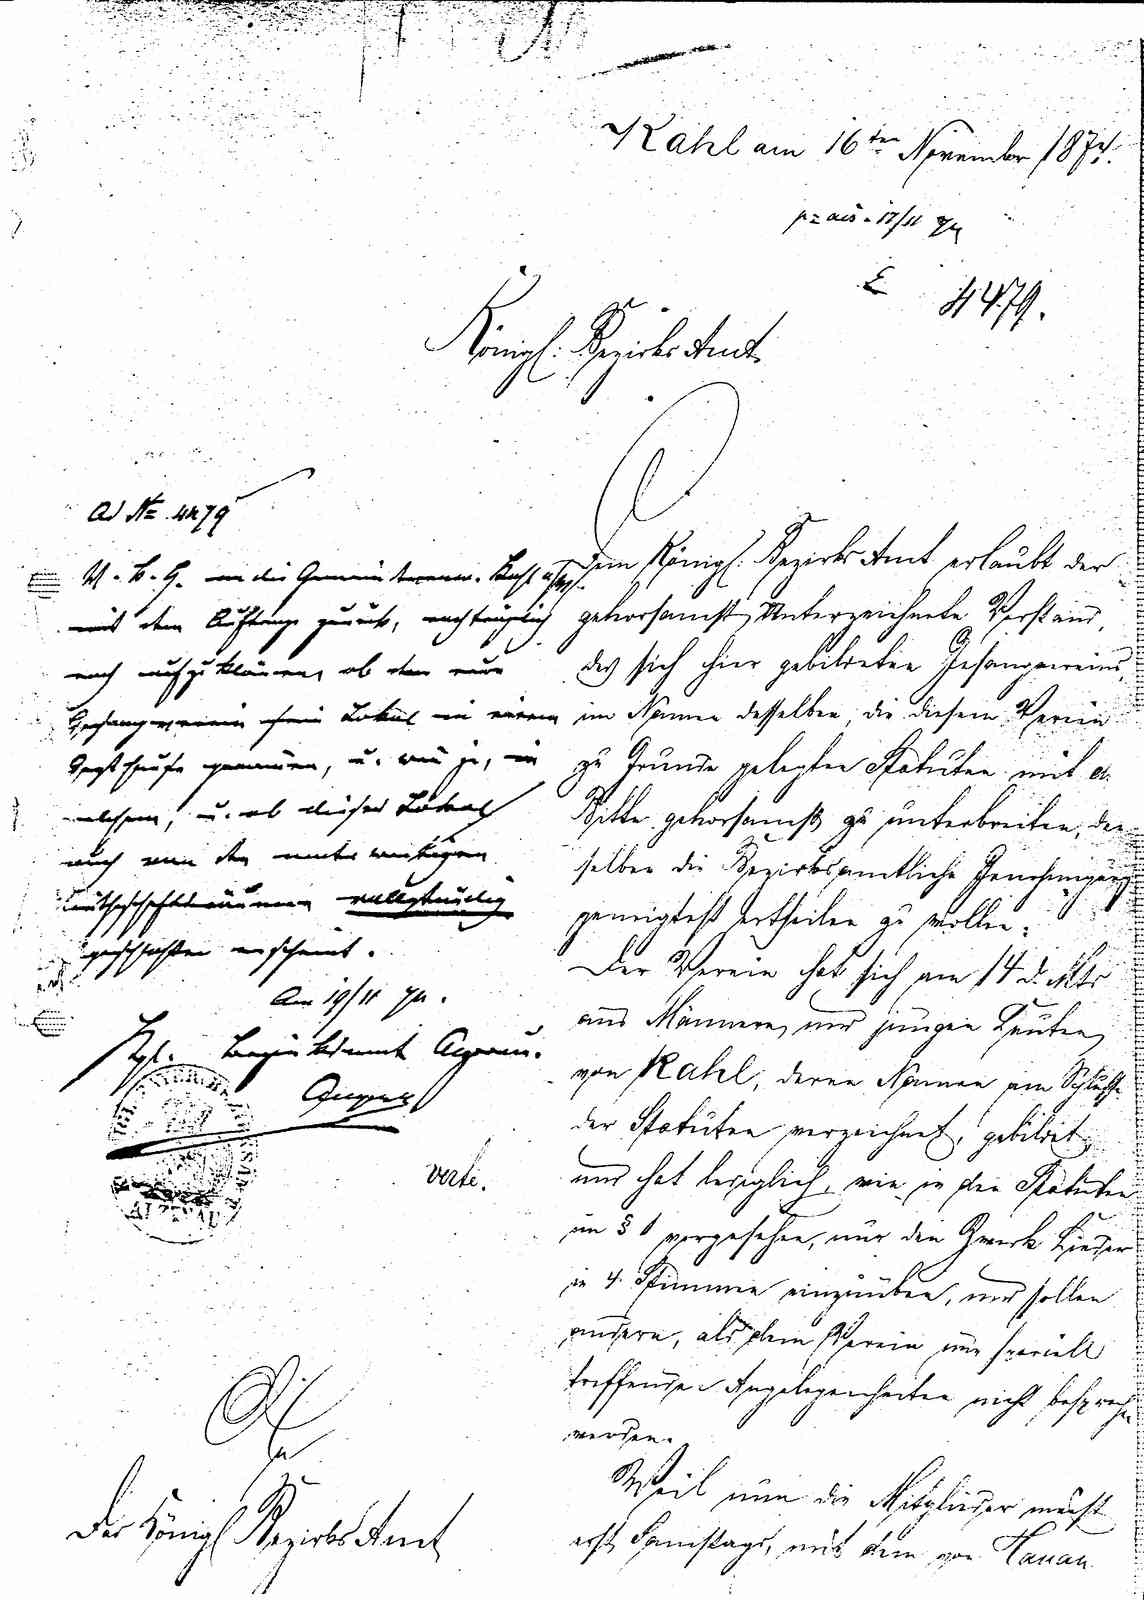 Kahl am 16ten November 1874.
17/11 74
4479.
Königl. Bezirks Amt
ad No 4479
mit dem Auftrage zurück, nachträglich
noch aufzuklären, ob der neue
Gesangverein sein Lokal in einem
Gasthause genommen, u. wenn ja, in
welchem, u. ob dieses Lokal
auch von den unter
Wirthschaftsräumen vollständig
geschlossen erscheint.
Am 19/11 74.
Kgl. Bezirksamt Alzenau.
verte.
An
Das Königl Bezirks Amt
Dem Königl. Bezirks Amt erlaubt der
gehorsamst Unterzeichnete Vorstand,
des sich hier gebildeten Gesangvereins,
im Namen desselben, die diesem Verein
zu Grunde gelegten Statuten mit d.
Bitte gehorsamst zu unterbreiten, den
selben die Bezirksamtliche Genehmigung
geneigtest ertheilen zu wollen.
Der Verein hat sich am 14 d. Mts
aus Männern und jungen Leuten
von Kahl, deren Namen am Schluße
der Statuten verzeichnet, gebildet
und hat lediglich, wie in den Statuten
im § 1 vorgesehen, nur den Zweck Lieder
in 4 Stimmen einzuüben, und sollen
andere, als dem Verein nur speciell
treffenden Angelegenheiten nicht besprochen
werden.
Weil nun die Mitglieder meist
erst Samstags, mit dem von Hanau